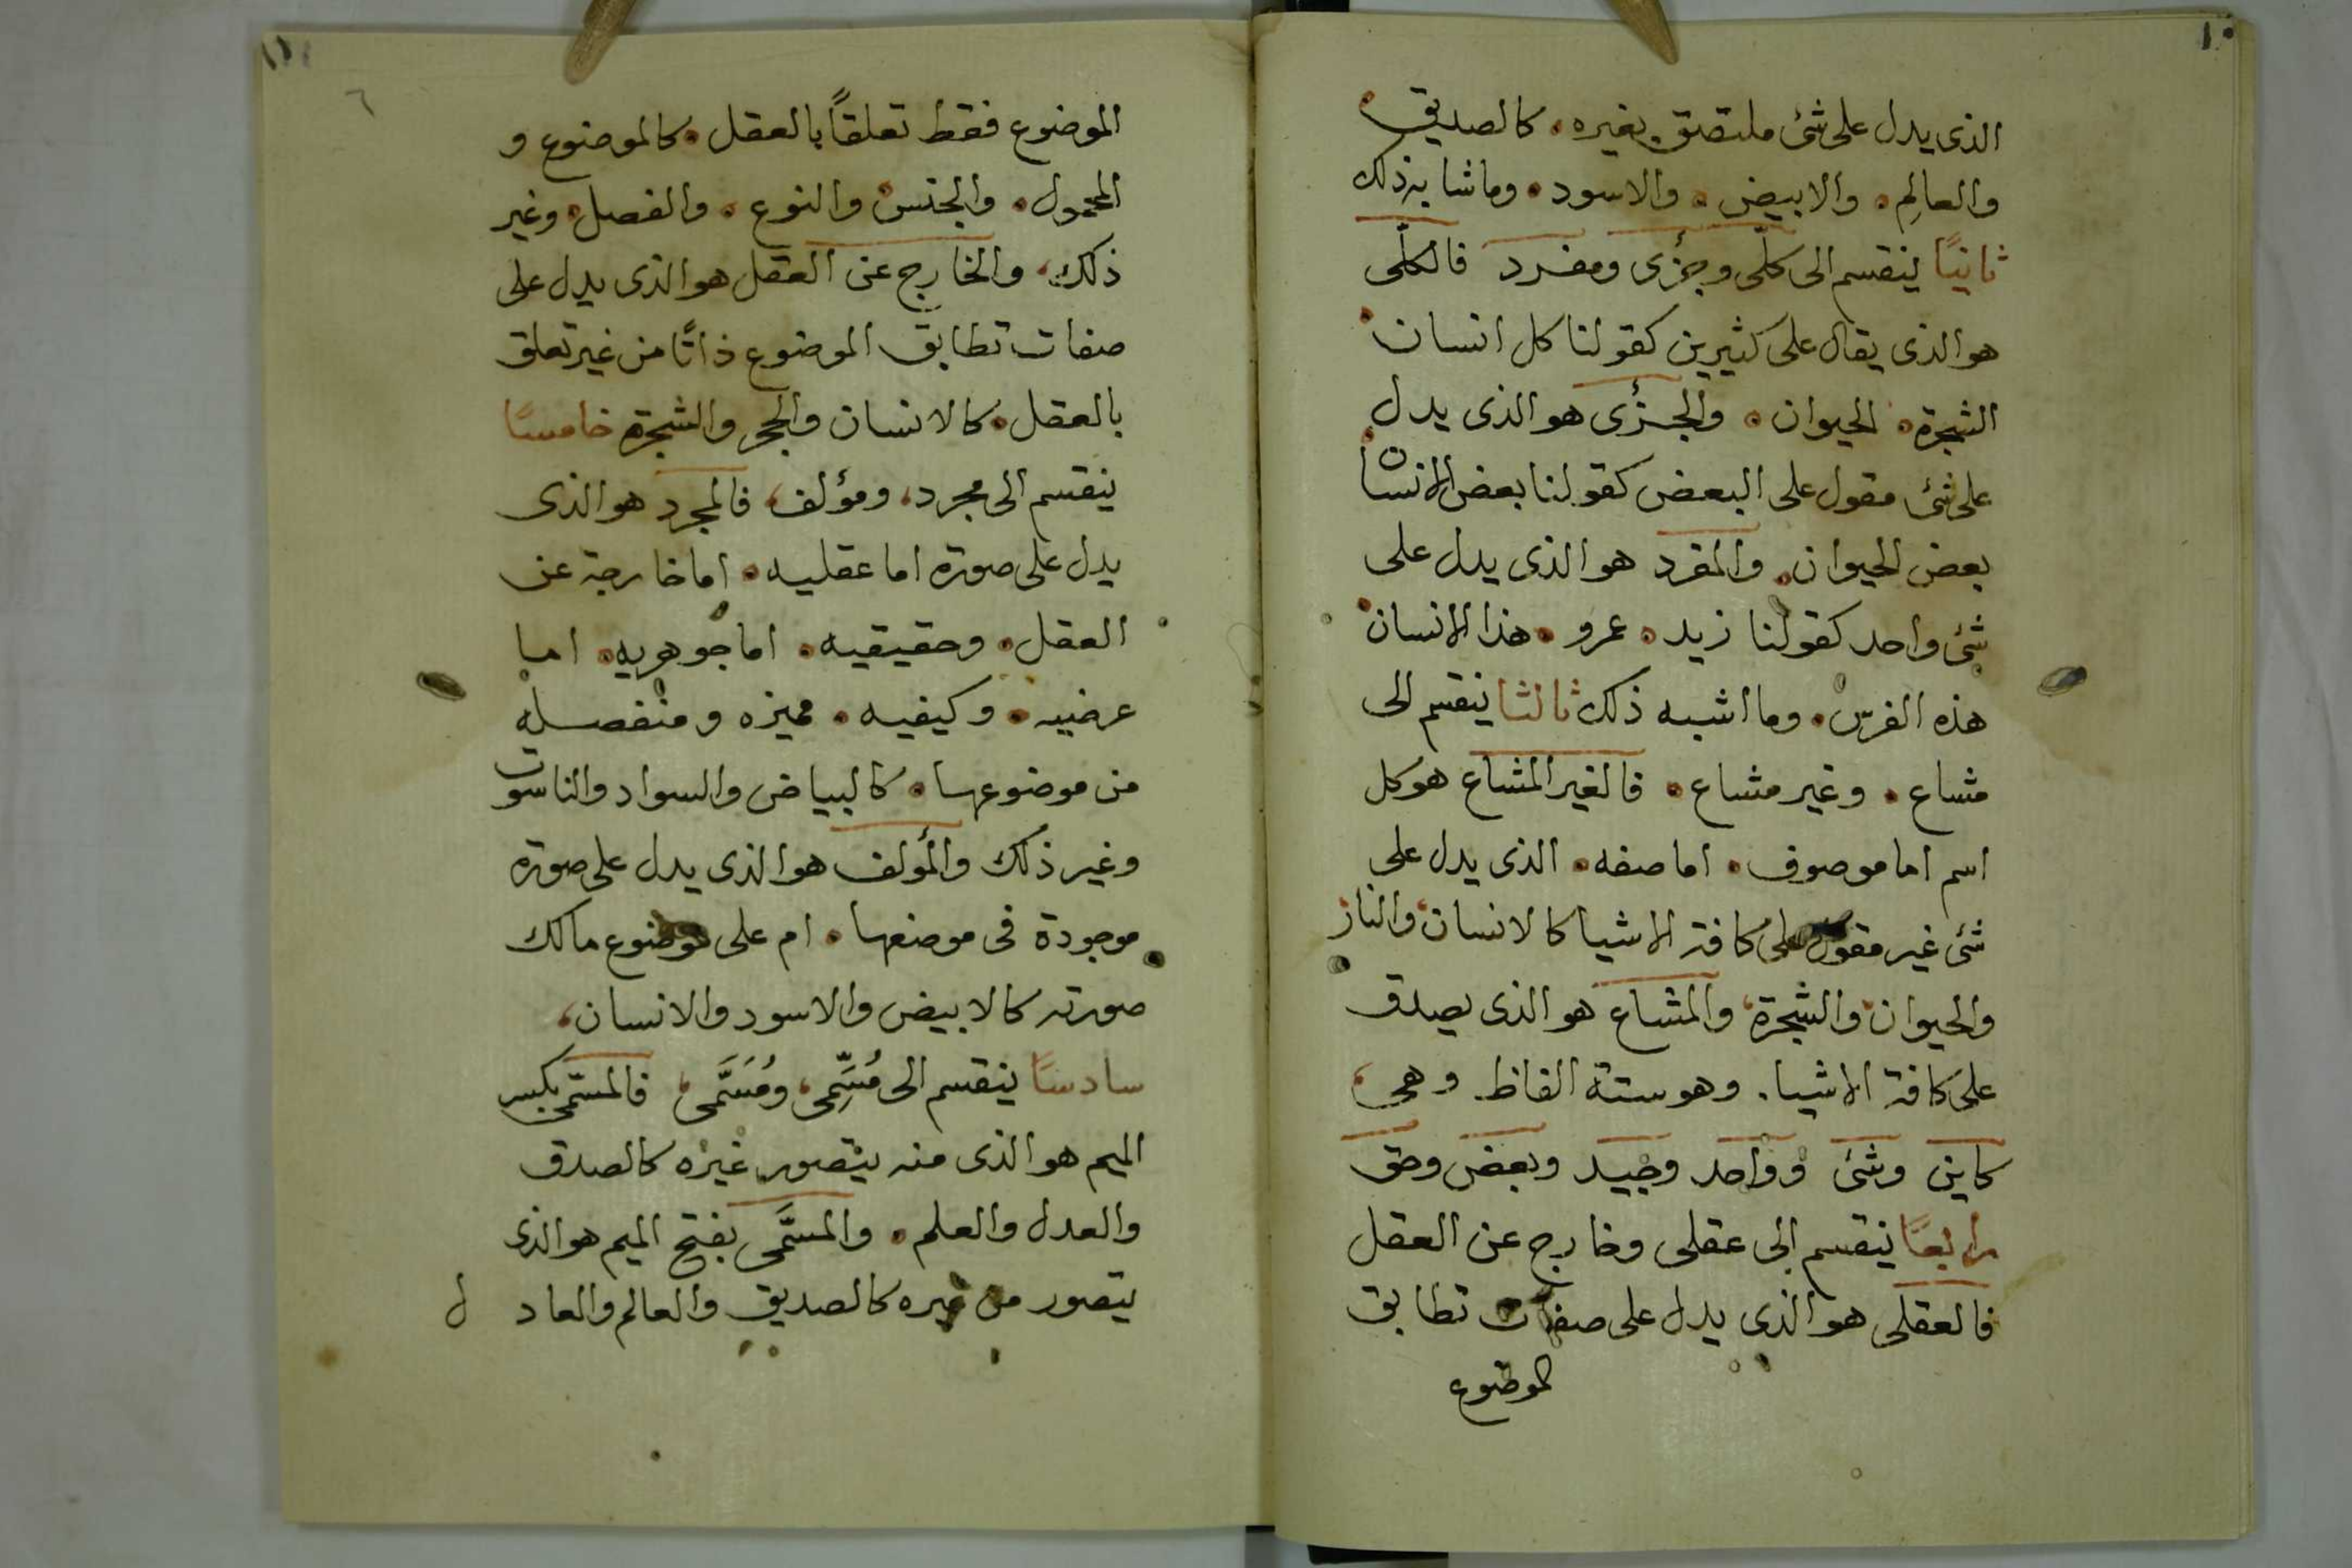 ١٠
الذى يدل على شئ ملتصق بغيره، كالصديق
والعالِم، والابيض، والاسود، وما شابه ذلك
ثانيًا ينقسم الى كلّى وجزٔى ومفرد فالكلّى
هو الذى يقال على كثيرين كقولنا كل انسان
الشجرة، الحيوان، والجزٔى هو الذى يدل
على شئ مقول على البعض كقولنا بعض الانسان
بعض الحيوان، والمفرد هو الذى يدل على
شئ واحد كقولنا زيد، عمرو، هذا الانسان
هذه الفرس، وما اشبه ذلك ثالثا ينقسم الى
مشاع، وغير مشاع، فالغير المشاع هو كل
اسم اما موصوف، اما صفه، الذى يدل على
شئ غير مقول على كافة الاشيا كالانسان والنار
والحيوان والشجرة، والمشاع هو الذى يصدق
على كافة الاشيا. وهو ستة الفاظ. وهى
كاين وشئ وواحد وجيد وبعض وحق
رابعًا ينقسم الى عقلى وخارج عن العقل
فالعقلى هو الذى يدل على صفات تطابق
الموضوع
١١
٦
الموضوع فقط تعلقاً بالعقل، كالموضوع و
المحمول، والجنس، والنوع، والفصل، وغير
ذلك، والخارج عن العقل هو الذى يدل على
صفات تطابق الموضوع ذاتًا من غير تعلق
بالعقل، كالانسان والحجر والشجرة خامسًا
ينقسم الى مجرد، ومؤلف، فالمجرد هو الذى
يدل على صورة اما عقليه، اما خارجة عن
العقل، وحقيقيه، اما جوهريه، اما
عرضيه، وكيفيه، مميزه ومنفصله
من موضوعها، كالبياض والسواد والناسوت
وغير ذلك والمؤلف هو الذى يدل على صورة
موجودة فى موضعها، ام على موضوع مالك
صورته كالابيض والاسود والانسان،
سادسًا ينقسم الى مُسَمِّى، ومُسَمَّى، فالمسمِّى بكسر
الميم هو الذى منه يتصور غيره كالصدق
والعدل والعلم، والمسمَّى بفتح الميم هو الذى
يتصور من غيره كالصديق والعالم والعادل